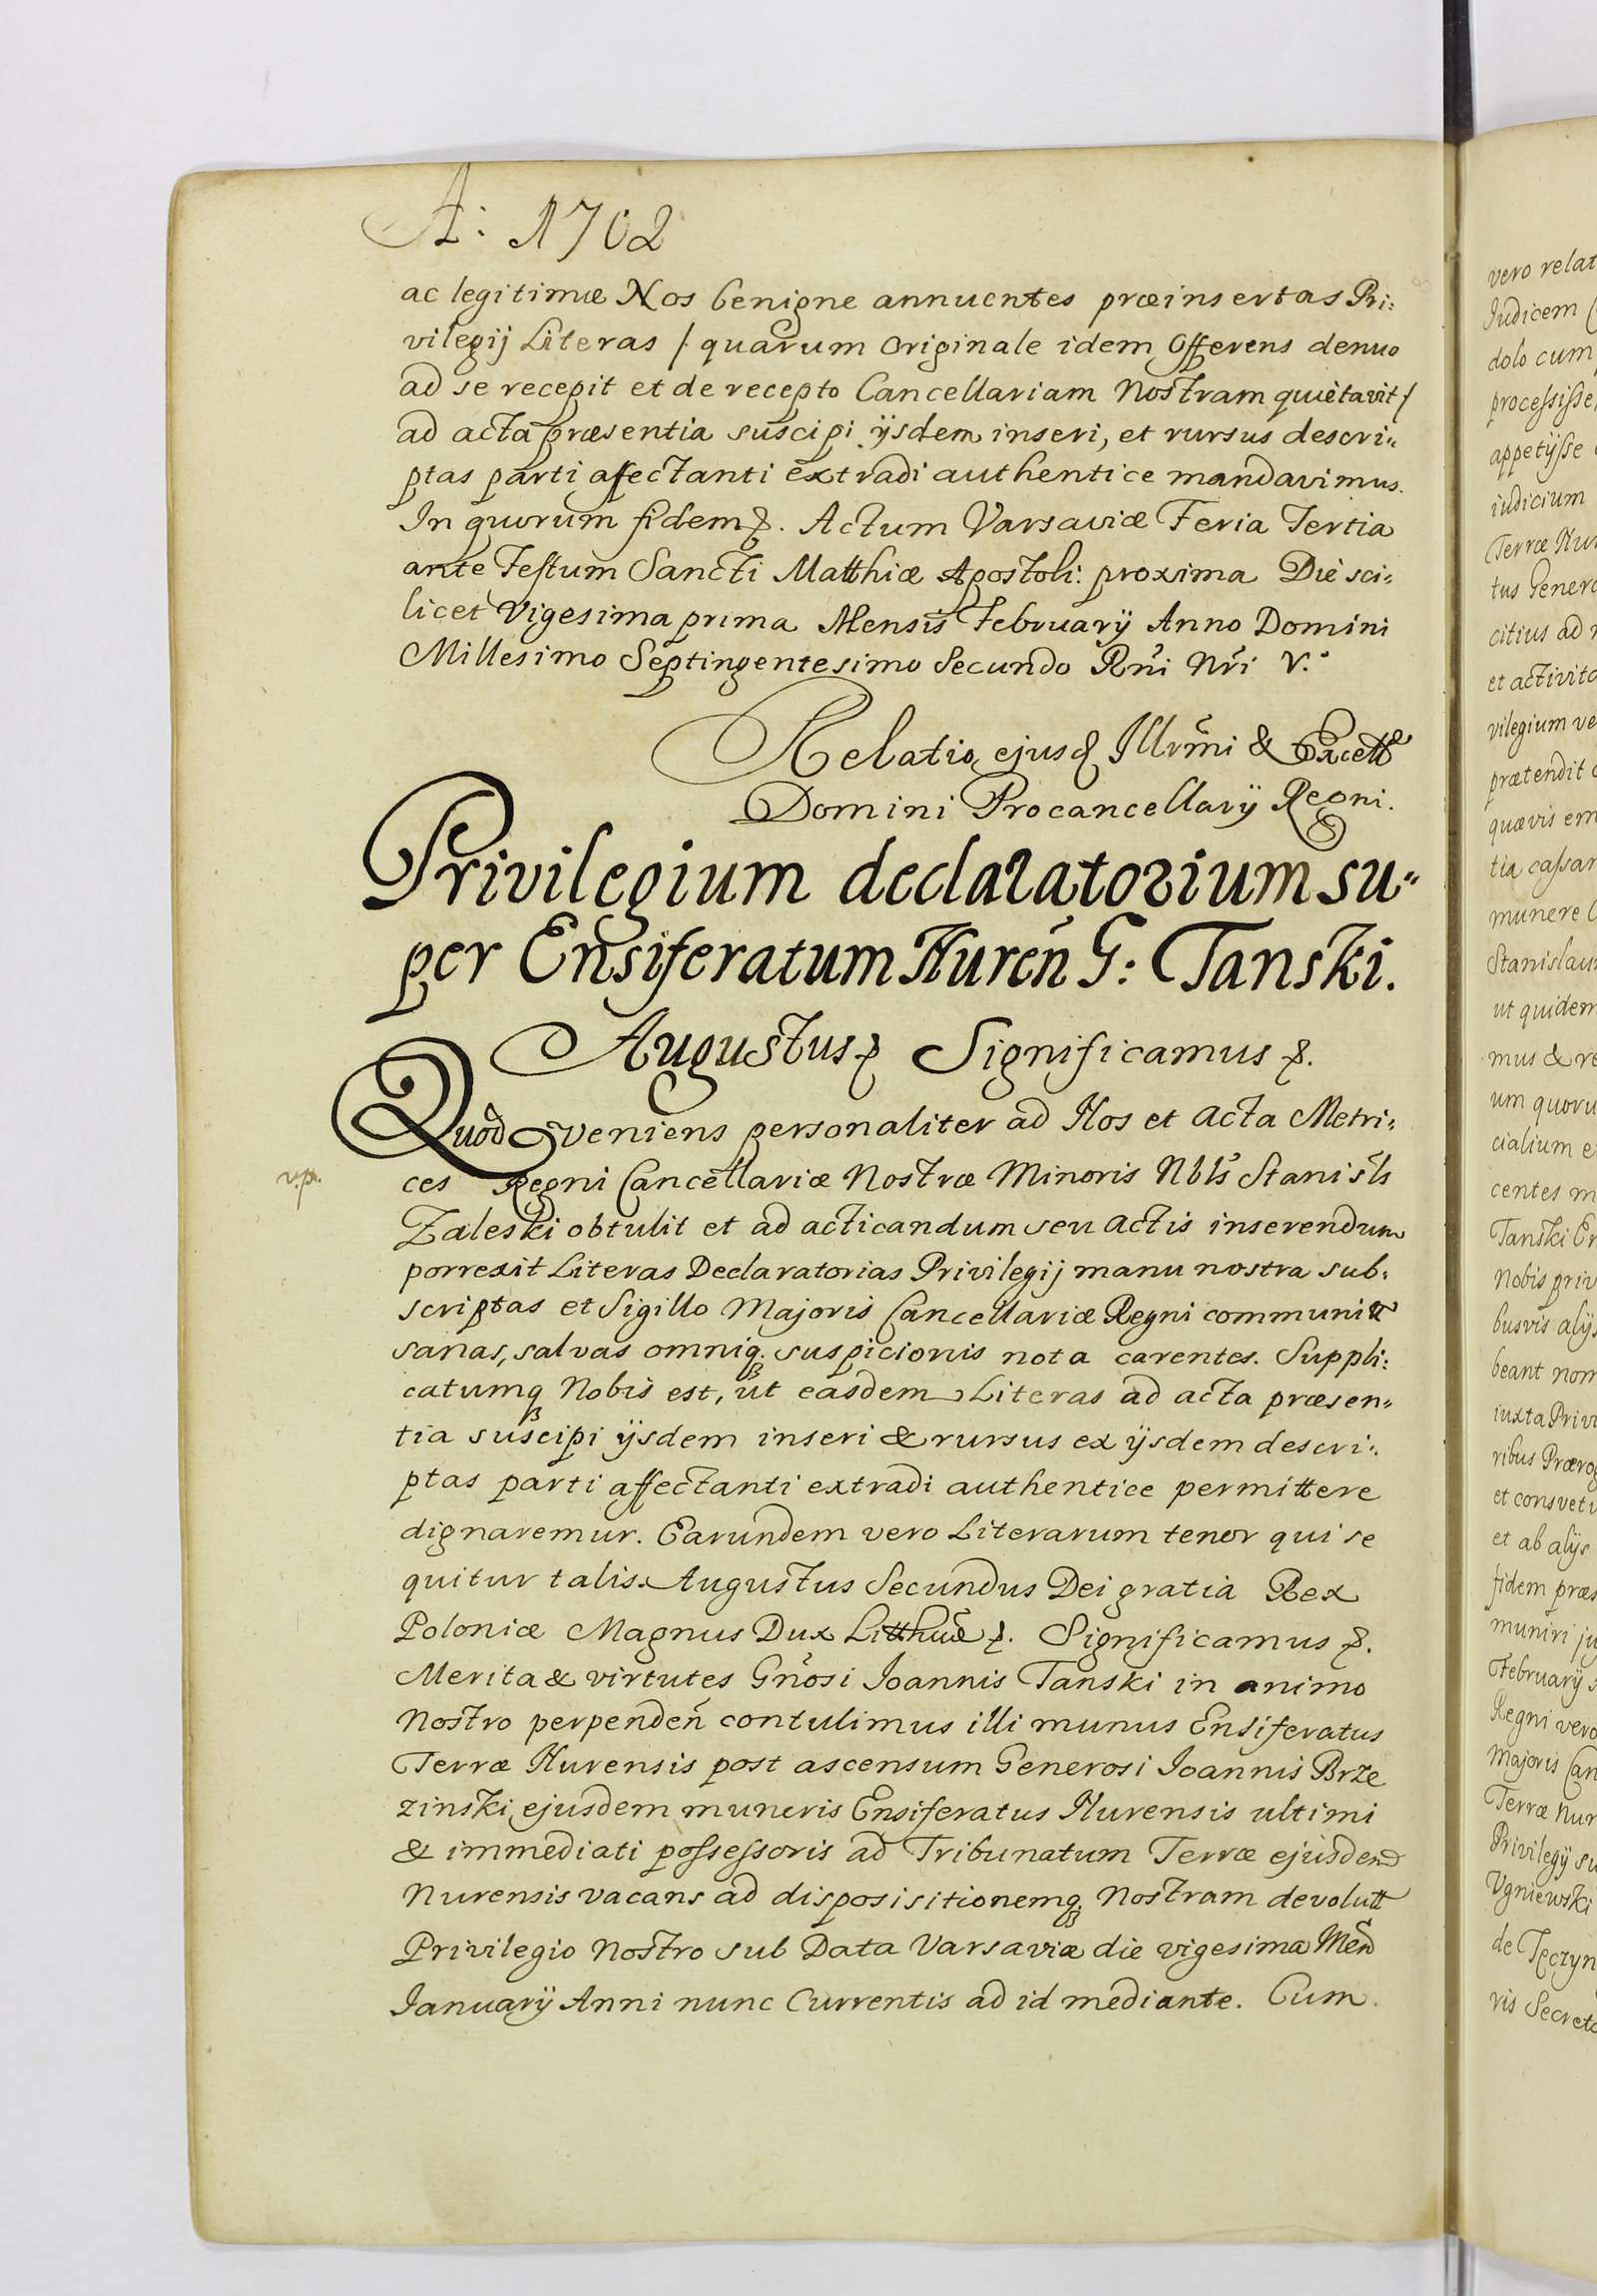 A: 1702
ac legitimæ Nos benigne annuentes præinsertas Pri:
vilegij Literas / quarum originale idem Offerens denuo
ad se recepit et de recepto Cancellariam Nostram quietavit /
ad acta præsentia suscipi ijsdem inseri, et rursus descri:
ptas parti affectanti extradi authentice mandavimus.
In quorum fidem &. Actum Varsaviæ Feria Tertia
ante Festum Sancti Matthiæ Apostoli: proxima Die sci:
licet Vigesima prima Mensis February Anno Domini
Millesimo Septingentesimo Secundo Rñi Nri V.
Relatio ejusd Illrmi & Excell
Domini Procancellarij Regni.
Privilegium declaratorium su:
per Ensiferatum Nureñ G: Tanski.
Augustus & Significamus &.
Quod veniens personaliter ad Nos et Acta Metri:
v.p.
ces Regni Cancellariæ Nostræ Minoris Nbls Stanisls
Zaleski obtulit et ad acticandum seu actis inserendum
porrexit Literas Declaratorias Privilegij manu nostra sub:
scriptas et Sigillo Majoris Cancellariæ Regni communitt
sanas, salvas omniq. suspicionis nota carentes. Suppli:
catumq Nobis est, ut easdem Literas ad acta præsen:
tia suscipi ijsdem inseri & rursus ex ijsdem descri:
ptas parti affectanti extradi authentice permittere
dignaremur. Earundem vero Literarum tenor qui se
quitur talis. Augustus Secundus Dei gratia Rex
Poloniæ Magnus Dux Litthuæ &. Significamus &.
Merita & virtutes Gñosi Joannis Tanski in animo
Nostro perpendeñ contulimus illi munus Ensiferatus
Terræ Nurensis post ascensum Generosi Joannis Brze
zinski, ejusdem muneris Ensiferatus Nurensis ultimi
& immediati possessoris ad Tribunatum Terræ ejusdem
Nurensis vacans ad disposisitionemq. Nostram devolutt
Privilegio Nostro sub Data Varsaviæ die vigesima Meñ
Ianuarij Anni nunc Currentis ad id mediante. Cum
vero relat
Iudicem
dolo cum
processisse
appetijsse
iudicium
Terræ Nur
tus Genero
citius ad
et activita
vilegium ve
prætendit
quævis em
tia cassar
munere
Stanislaum
ut quidem
mus & re
um quoru
cialium e
centes m
Tanski En
Nobis priv
busvis alijs
beant nom
iuxta Privi
ribus Prærog
et consvetu
et ab alijs
fidem præs
muniri ju
February
Regni vero
Majoris Can
Terræ Nur
Privilegij su
Ugniewski
de Tęczyn
vis Secreta